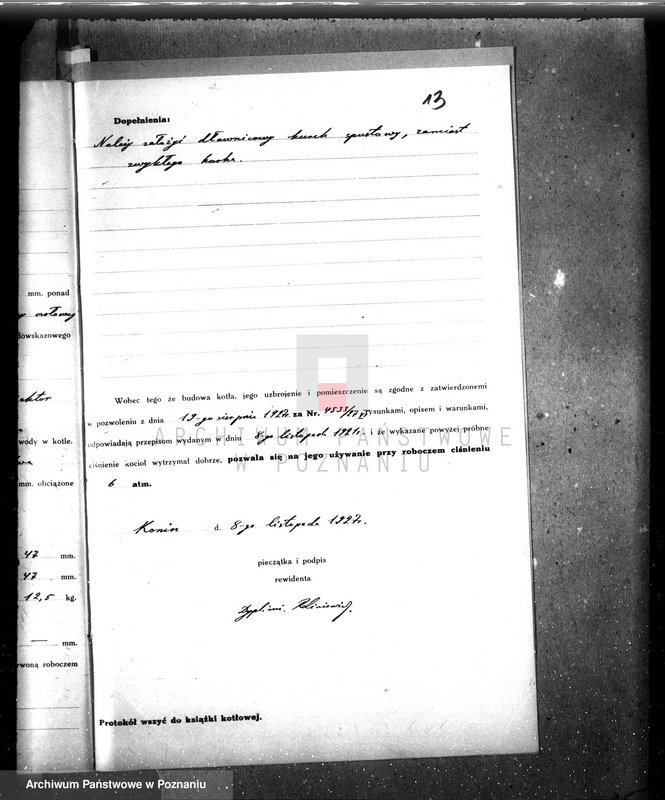 13
Dopełnienia:
Należy założyć dławnicowy kurek spustowy, zamiast
zwykłego kurka.
mm. ponad
dowskazowego
wody w kotle.
mm. obciążone
47 mm.
47 mm.
12,5 kg.
— mm.
erwoną roboczem
Wobec tego że budowa kotła, jego uzbrojenie i pomieszczenie są zgodne z zatwierdzonemi
w pozwoleniu z dnia 19-go sierpnia 1927r. za Nr. 4533/27 rysunkami, opisem i warunkami,
odpowiadają przepisom wydanym w dniu 8-go listopada 1921r. i że wykazane powyżej próbne
ciśnienie kocioł wytrzymał dobrze, pozwala się na jego używanie przy roboczem ciśnieniu
6 atm.
Konin d. 8-go listopada 1927r.
pieczątka i podpis
rewidenta
Protokół wszyć do książki kotłowej.
ARCHIWUM PAŃSTWOWE
W POZNANIU
Archiwum Państwowe w Poznaniu